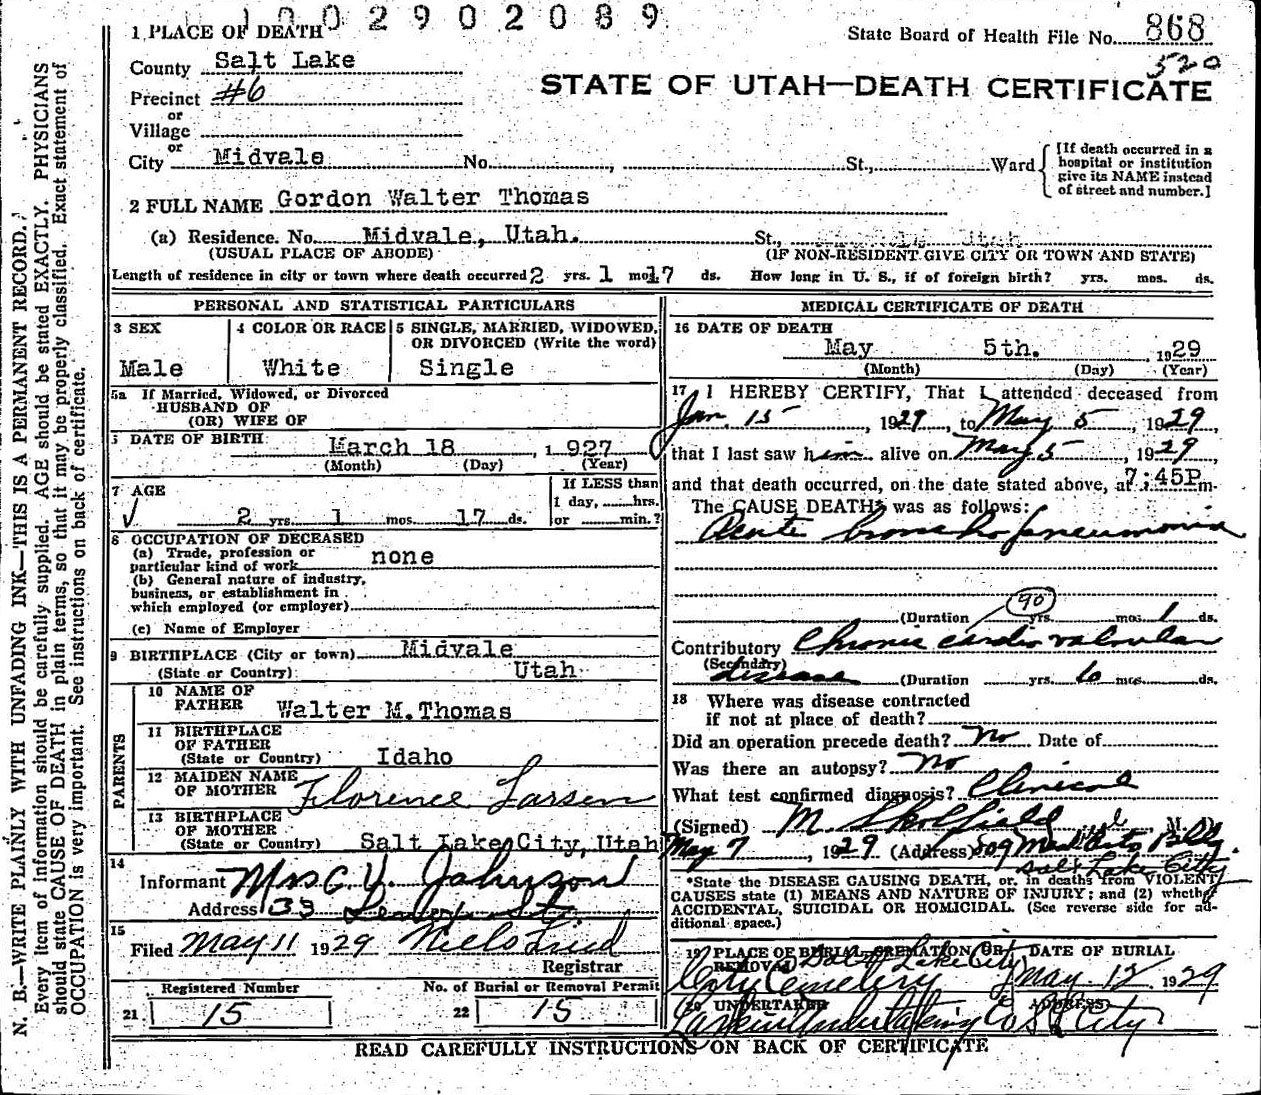 1002902089
1 PLACE OF DEATH
State Board of Health File No. 868
520
County Salt Lake
STATE OF UTAH—DEATH CERTIFICATE
Precinct #6
or
Village
or
City Midvale No. , St., Ward
[If death occurred in a
hospital or institution
give its NAME instead
of street and number.]
2 FULL NAME Gordon Walter Thomas
(a) Residence. No. Midvale, Utah. St., Utah
(USUAL PLACE OF ABODE) (IF NON-RESIDENT GIVE CITY OR TOWN AND STATE)
Length of residence in city or town where death occurred 2 yrs. 1 mos. 17 ds. How long in U. S., if of foreign birth? yrs. mos. ds.
PERSONAL AND STATISTICAL PARTICULARS
3 SEX
Male
4 COLOR OR RACE
White
5 SINGLE, MARRIED, WIDOWED,
OR DIVORCED (Write the word)
Single
5a If Married, Widowed, or Divorced
HUSBAND OF
(OR) WIFE OF
DATE OF BIRTH March 18 , 1927
(Month) (Day) (Year)
7 AGE
2 yrs. 1 mos. 17 ds.
If LESS than
1 day, hrs.
or min.?
8 OCCUPATION OF DECEASED
(a) Trade, profession or
particular kind of work none
(b) General nature of industry,
business, or establishment in
which employed (or employer)
(c) Name of Employer
9 BIRTHPLACE (City or town) Midvale
(State or Country) Utah
PARENTS
10 NAME OF
FATHER Walter M. Thomas
11 BIRTHPLACE
OF FATHER
(State or Country) Idaho
12 MAIDEN NAME
OF MOTHER Florence Larsen
13 BIRTHPLACE
OF MOTHER
(State or Country) Salt Lake City, Utah
14
Informant Mrs C Y. Johnson
Address 133
15
Filed May 11 1929 Niels Lind
Registrar
Registered Number No. of Burial or Removal Permit
21 15 22 15
MEDICAL CERTIFICATE OF DEATH
16 DATE OF DEATH
May 5th. , 1929
(Month) (Day) (Year)
17 I HEREBY CERTIFY, That I attended deceased from
Jan. 15 , 1929, to May 5 , 1929,
that I last saw him alive on May 5 , 1929,
and that death occurred, on the date stated above, at 7:45P m.
The CAUSE DEATH* was as follows:
Acute broncho pneumonia
90
(Duration yrs. mos. 1 ds.
Contributory Chronic cardio valvular
(Secondary)
disease (Duration yrs. 6 mos. ds.
18 Where was disease contracted
if not at place of death?
Did an operation precede death? No Date of
Was there an autopsy? No
What test confirmed diagnosis? Clinical
(Signed) M Skolfield M. D.
May 7 , 1929 (Address) 509 Med Arts Bldg.
Salt Lake City
*State the DISEASE CAUSING DEATH, or, in deaths from VIOLENT
CAUSES state (1) MEANS AND NATURE OF INJURY; and (2) whether
ACCIDENTAL, SUICIDAL OR HOMICIDAL. (See reverse side for ad-
ditional space.)
19 PLACE OF BURIAL, CREMATION OR
REMOVAL Salt Lake City
City Cemetery
DATE OF BURIAL
May 12 1929
20 UNDERTAKER
Larkin Undertaking Co
ADDRESS
S L City
READ CAREFULLY INSTRUCTIONS ON BACK OF CERTIFICATE
N. B.—WRITE PLAINLY WITH UNFADING INK—THIS IS A PERMANENT RECORD.
Every item of information should be carefully supplied. AGE should be stated EXACTLY. PHYSICIANS
should state CAUSE OF DEATH in plain terms, so that it may be properly classified. Exact statement of
OCCUPATION is very important. See instructions on back of certificate.